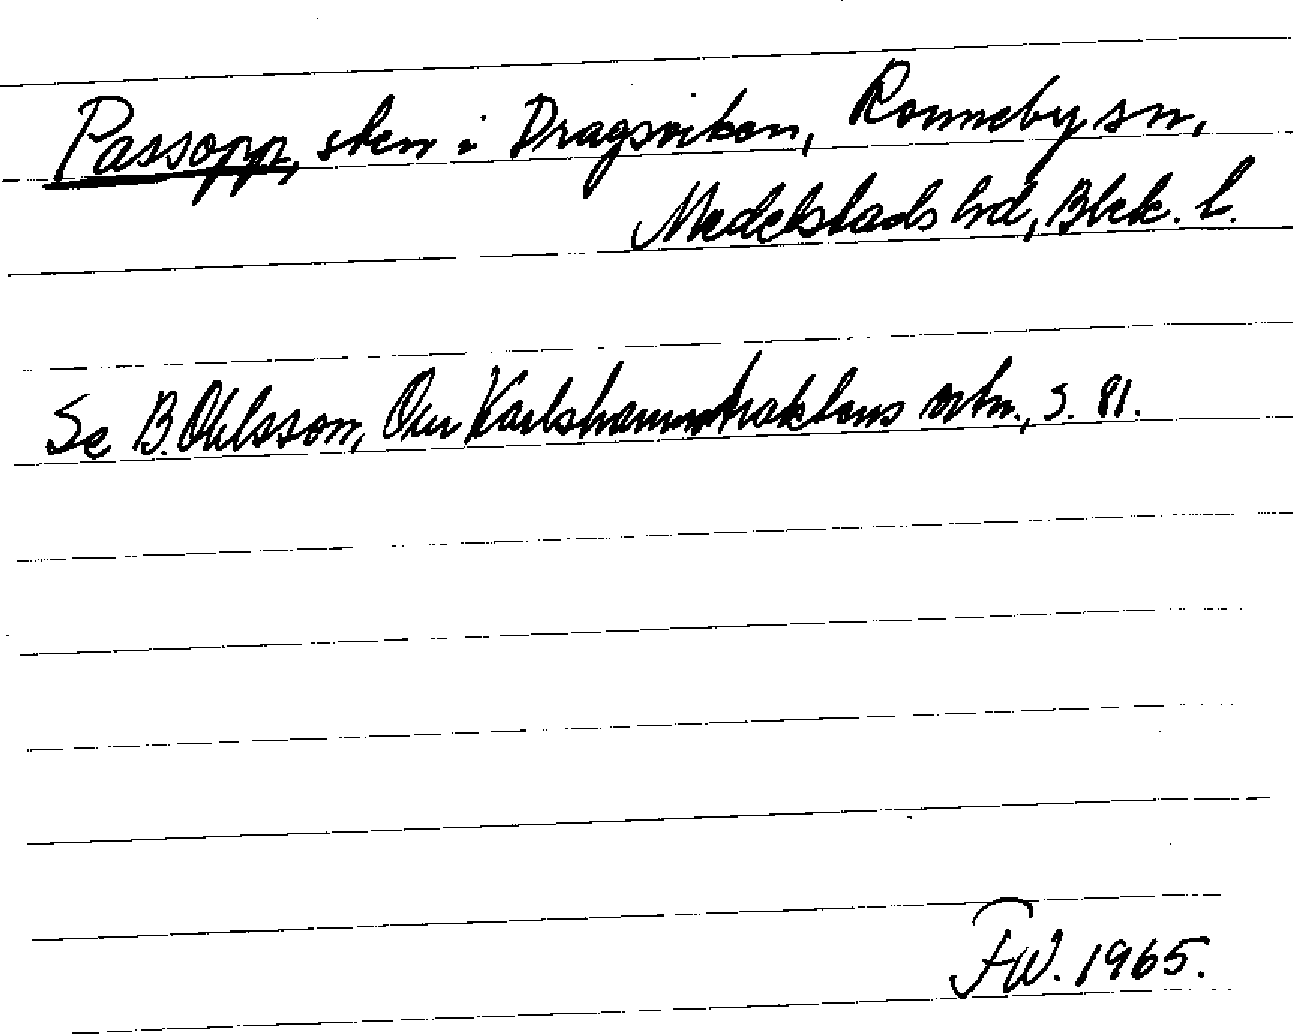 Passopp, sten i Dragsviken, Ronneby sn,
Medelstads hd, Blek. l.
Se B. Ohlsson, Om Karlshamnstraktens ortn., s. 81.
FW. 1965.